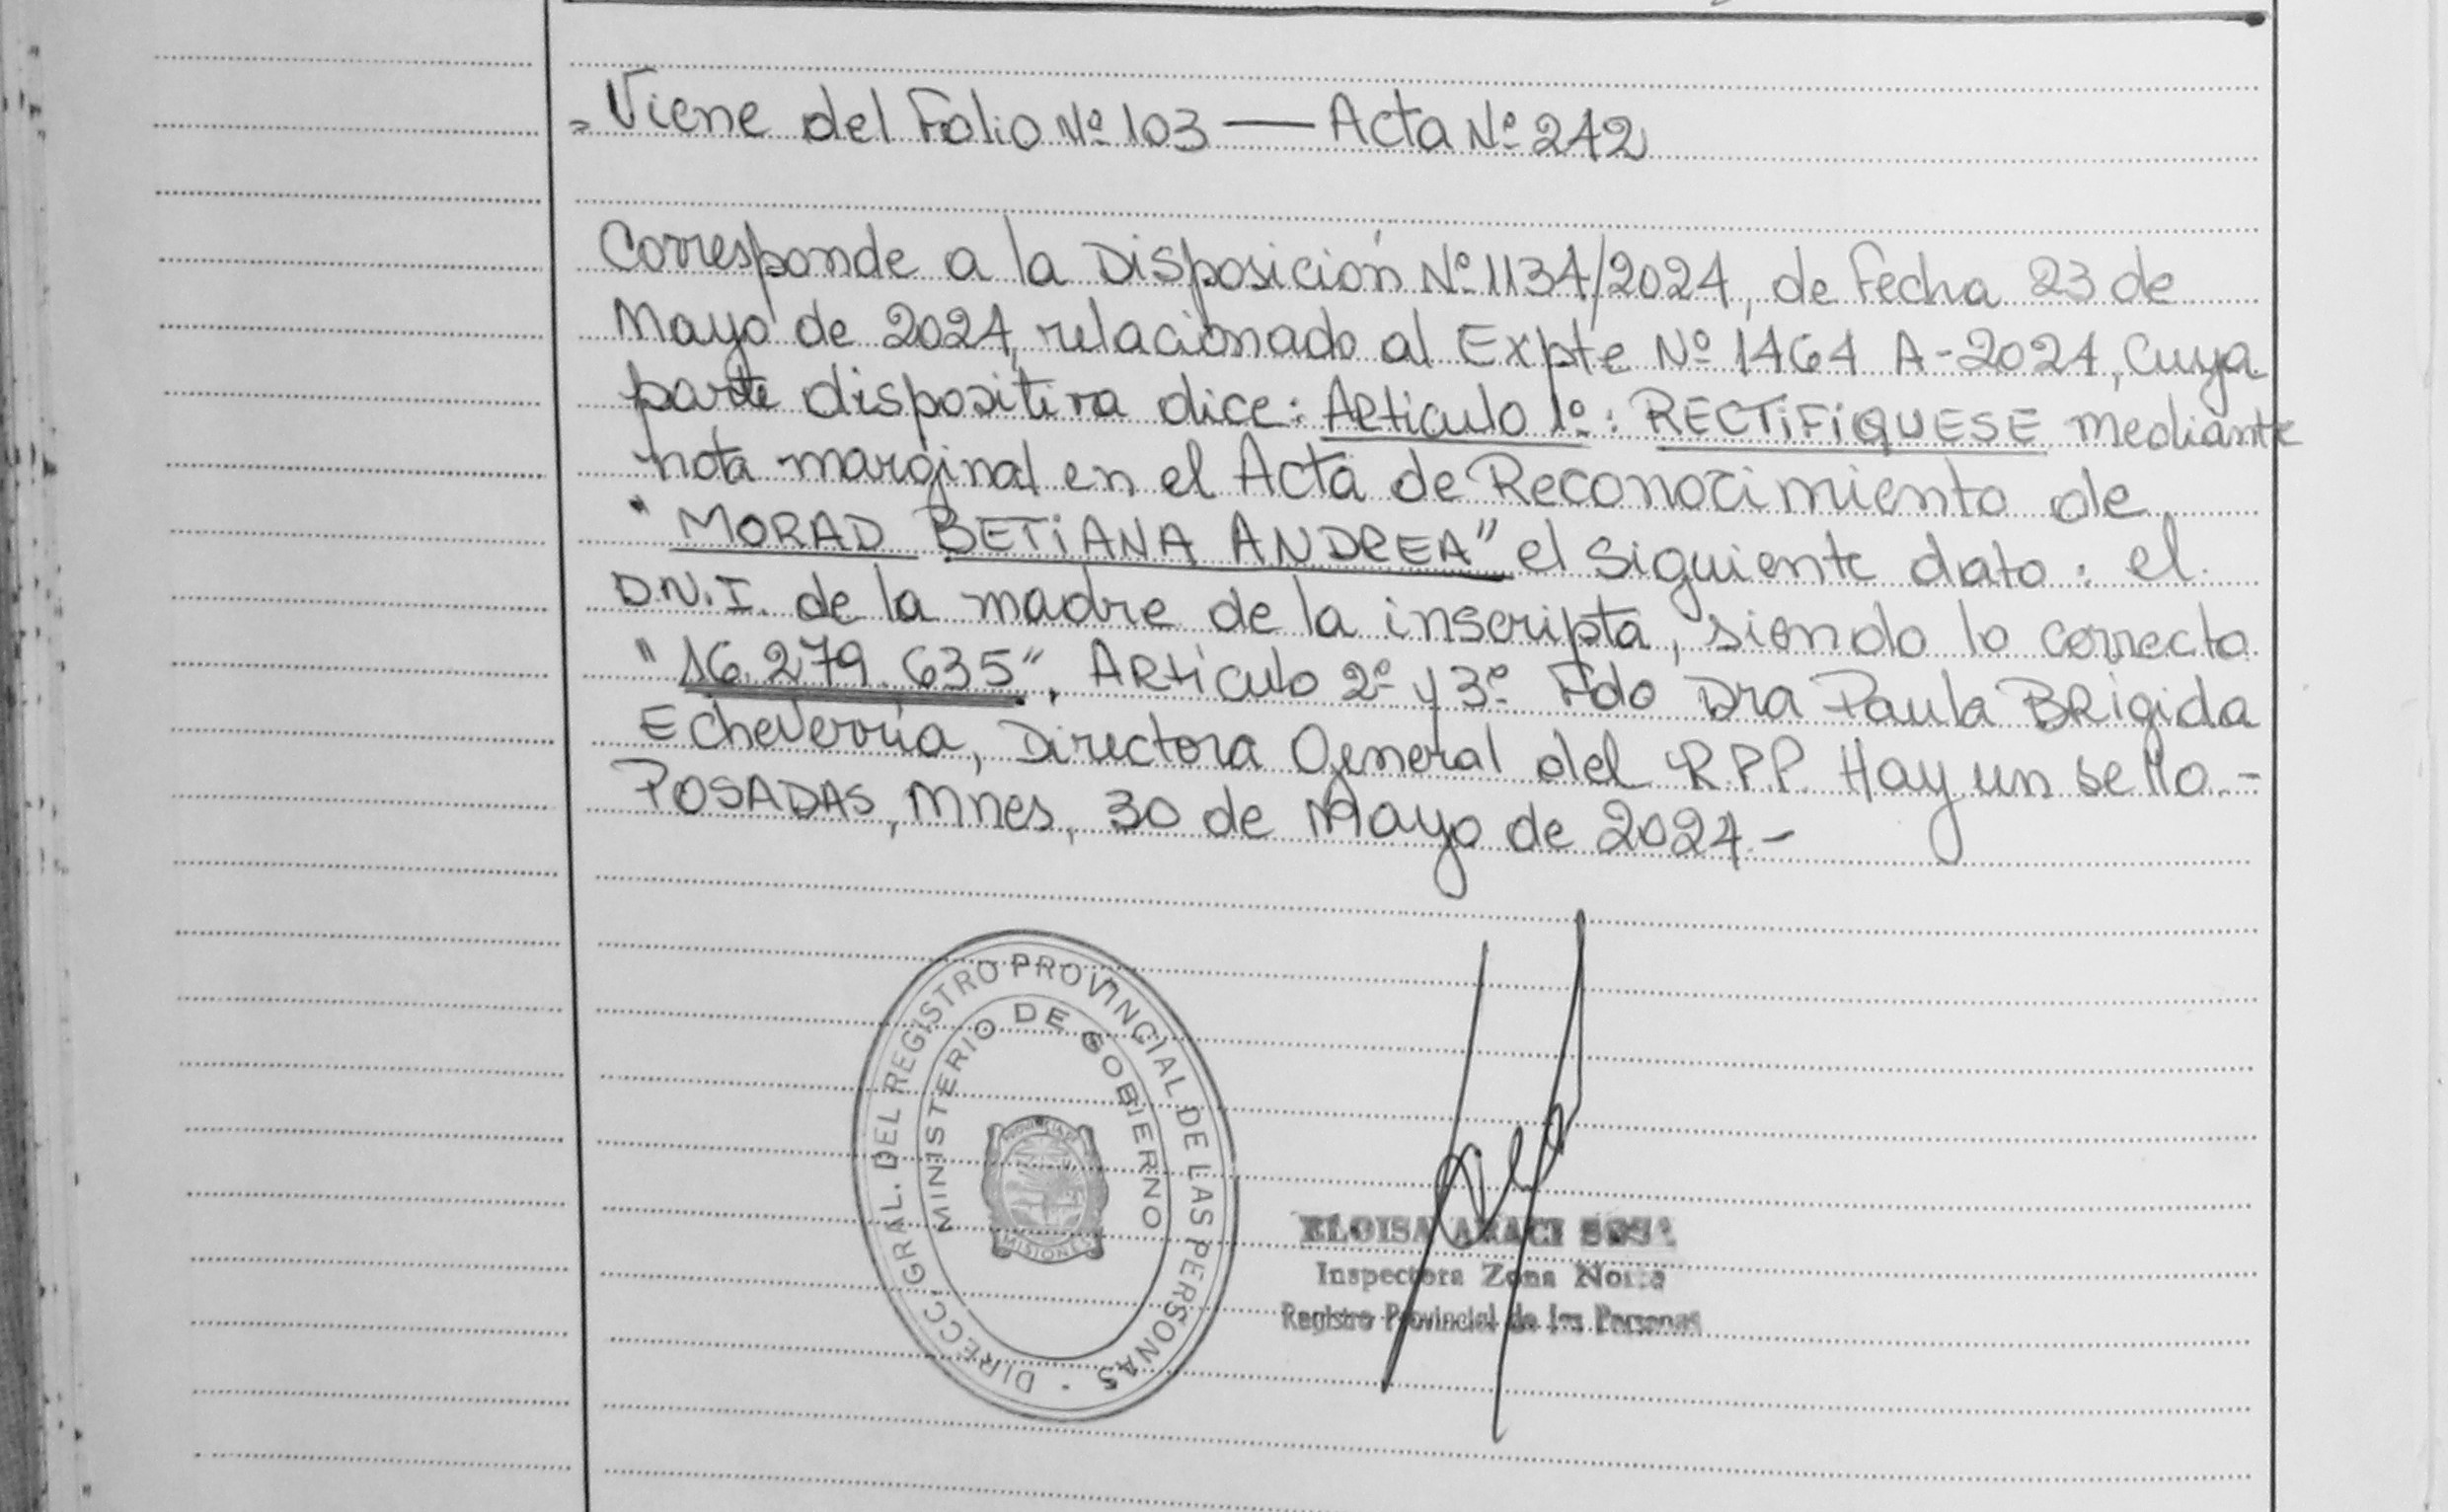 = Viene del Folio Nº 103 — Acta Nº 242
Corresponde a la Disposición Nº 1134/2024, de Fecha 23 de
Mayo de 2024, relacionado al Expte Nº 1464 A-2024, Cuya
parte dispositiva dice: Articulo 1º: RECTiFiQUESE mediante
nota marginal en el Acta de Reconocimiento de
"MORAD BETiANA ANDREA" el siguiente dato: el
D.N.I. de la madre de la inscripta, siendo lo correcto
"16.279.635". Articulo 2º y 3º Fdo Dra Paula BRigida
Echeverría, Directora General del R.P.P. Hay un sello.-
POSADAS, Mnes, 30 de Mayo de 2024.-
DIRECC. GRAL. DEL REGISTRO PROVINCIAL DE LAS PERSONAS -
MINISTERIO DE GOBIERNO
PROVINCIA DE
MISIONES
ELOISA ARACI SOSA
Inspectora Zona Norte
Registro Provincial de las Personas